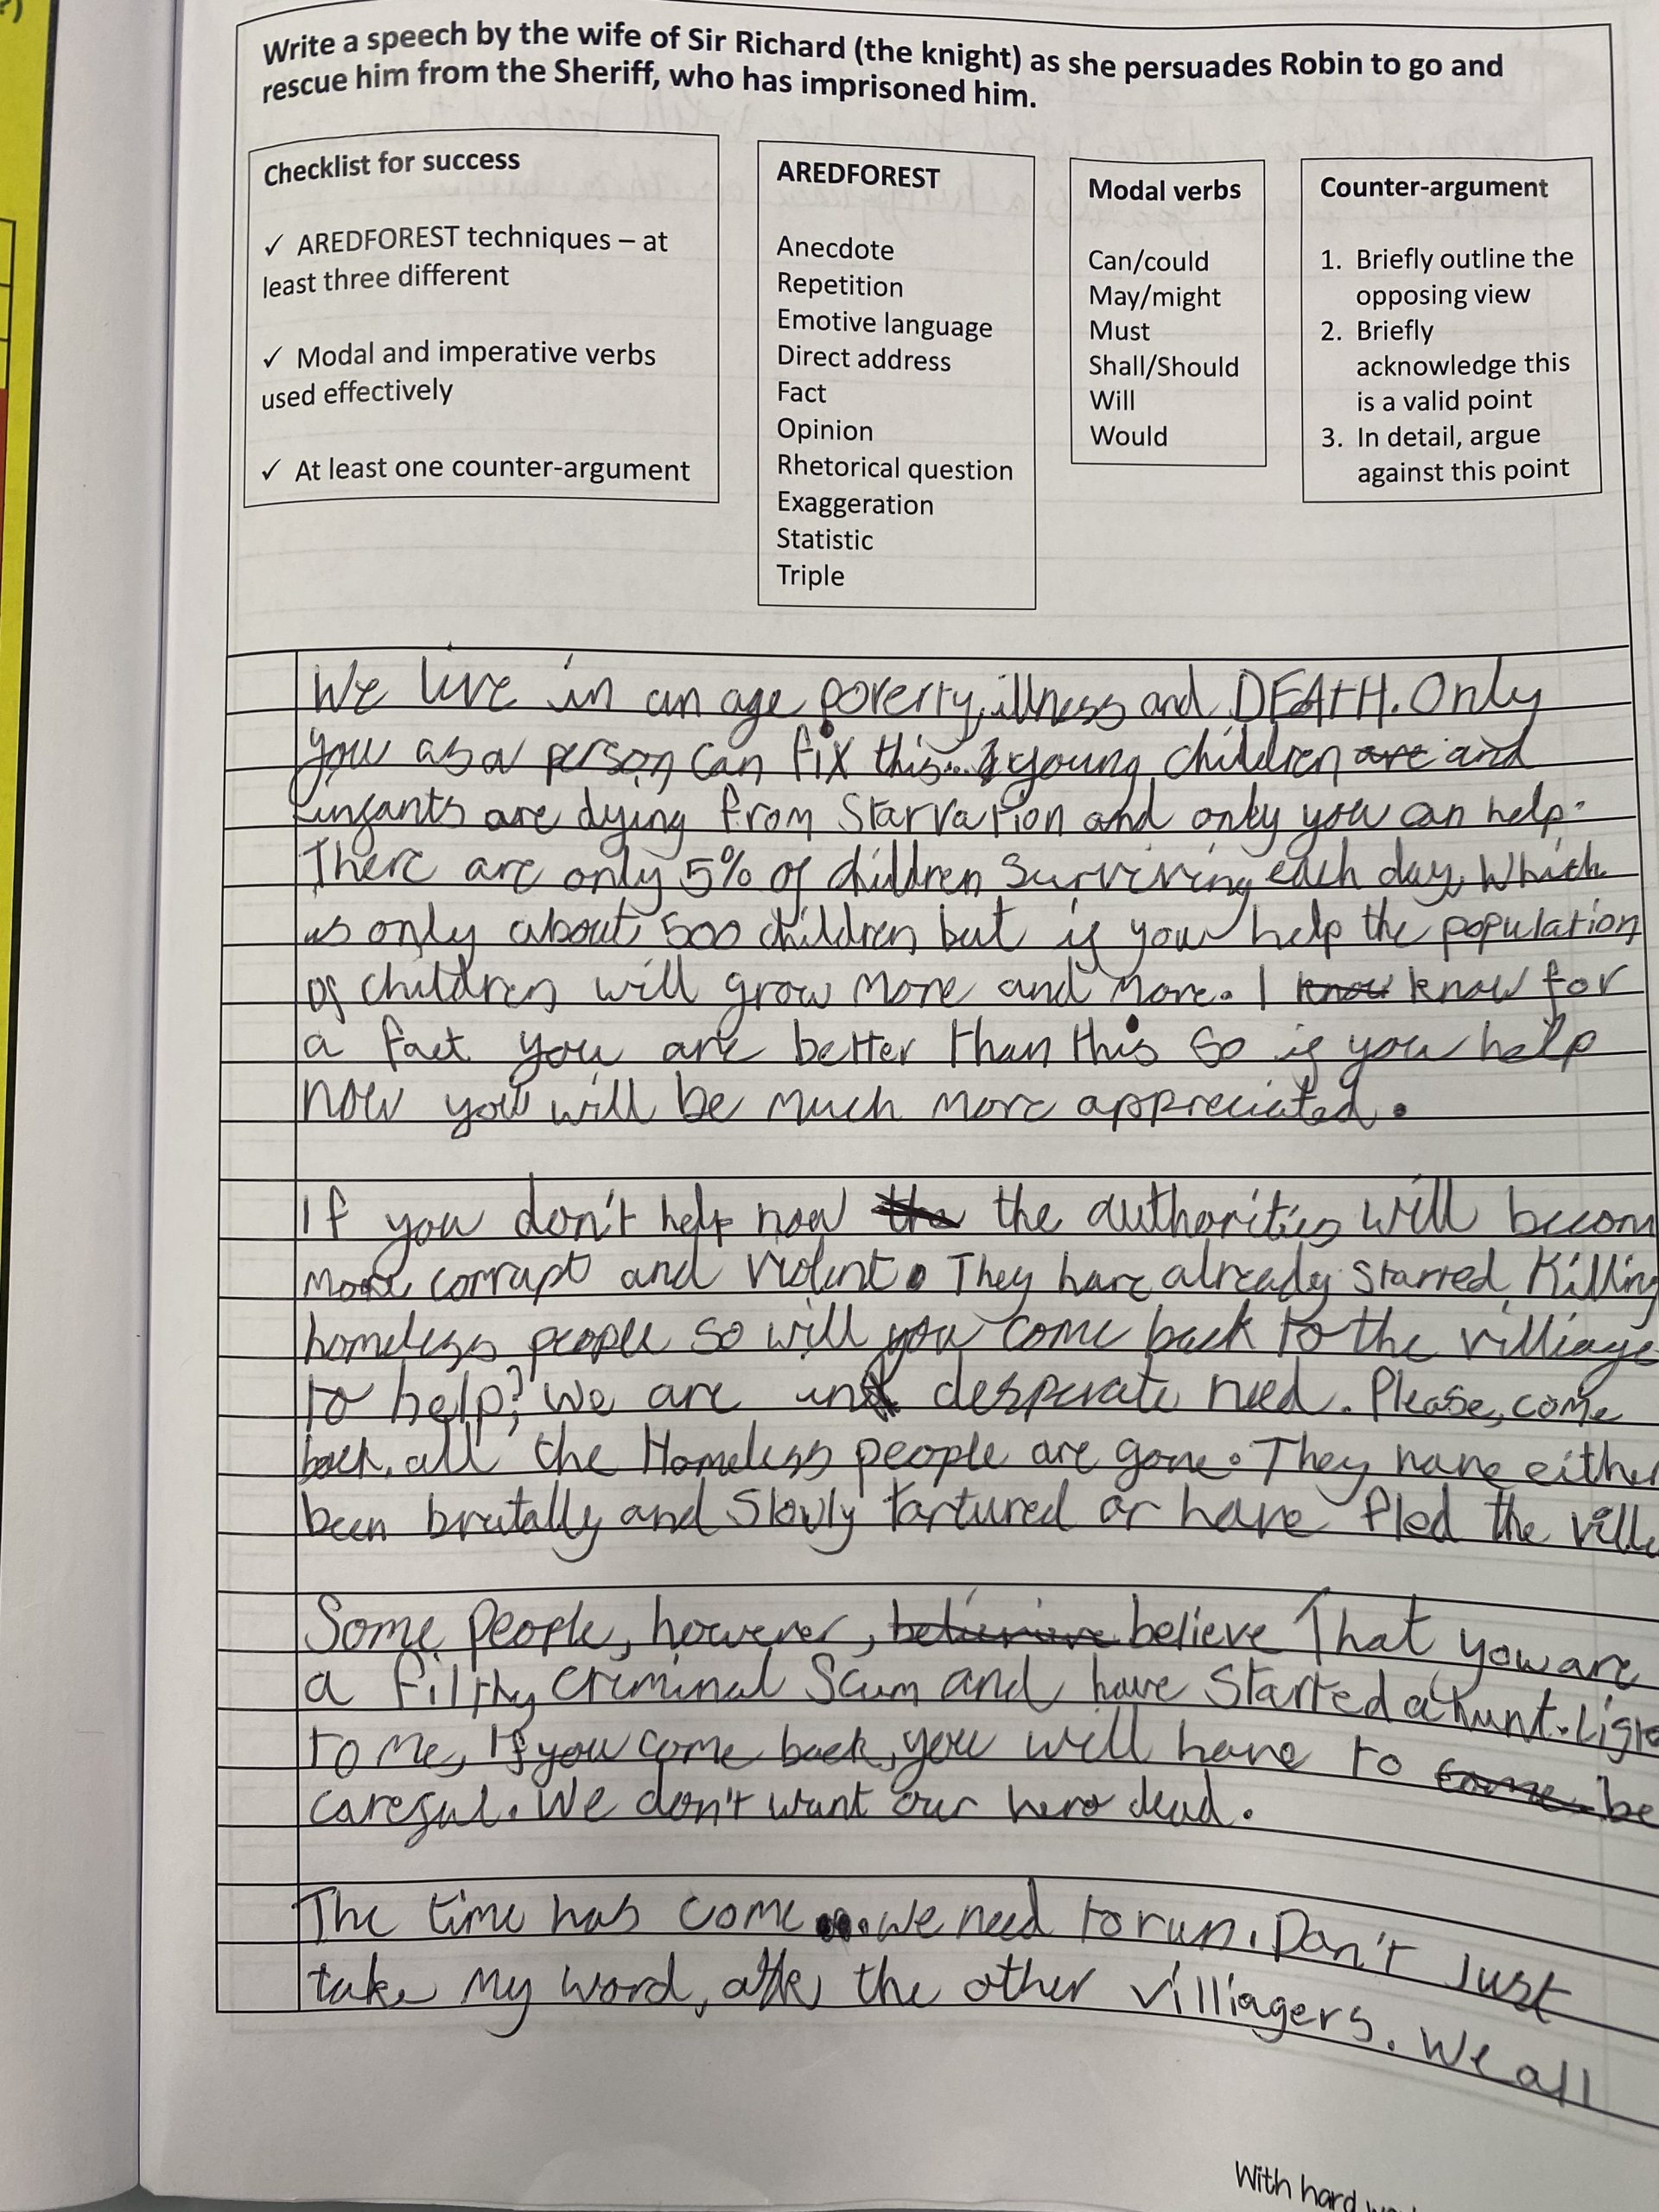 ?)
Write a speech by the wife of Sir Richard (the knight) as she persuades Robin to go and
rescue him from the Sheriff, who has imprisoned him.
Checklist for success
✓ AREDFOREST techniques – at
least three different
✓ Modal and imperative verbs
used effectively
✓ At least one counter-argument
AREDFOREST
Anecdote
Repetition
Emotive language
Direct address
Fact
Opinion
Rhetorical question
Exaggeration
Statistic
Triple
Modal verbs
Can/could
May/might
Must
Shall/Should
Will
Would
Counter-argument
1. Briefly outline the
opposing view
2. Briefly
acknowledge this
is a valid point
3. In detail, argue
against this point
We live in an age poverty, illness and DEAtH. Only
you as a person can fix this... young children are and
infants are dying from Starvation and only you can help.
There are only 5% of children surviving each day. Which
is only about 500 children but if you help the population
of children will grow more and more. I know know for
a fact you are better than this so if you help
now you will be much more appreciated.
If you don't help now the the authorities will becom
more corrupt and violent. They have already started Killing
homeless people so will you come back to the villiage
to help? we are in desperate need. Please, come
back, all the Homeless people are gone. They have either
been brutally and Slowly tartured or have fled the villa
Some people, however, believe That you are
a filthy criminal Scum and have started a hunt. Liste
to me, If you come back, you will have to come be
careful. We don't want our hero dead.
The time has come... we need to run. Don't Just
take My word, ask the other villiagers. We all
With hard